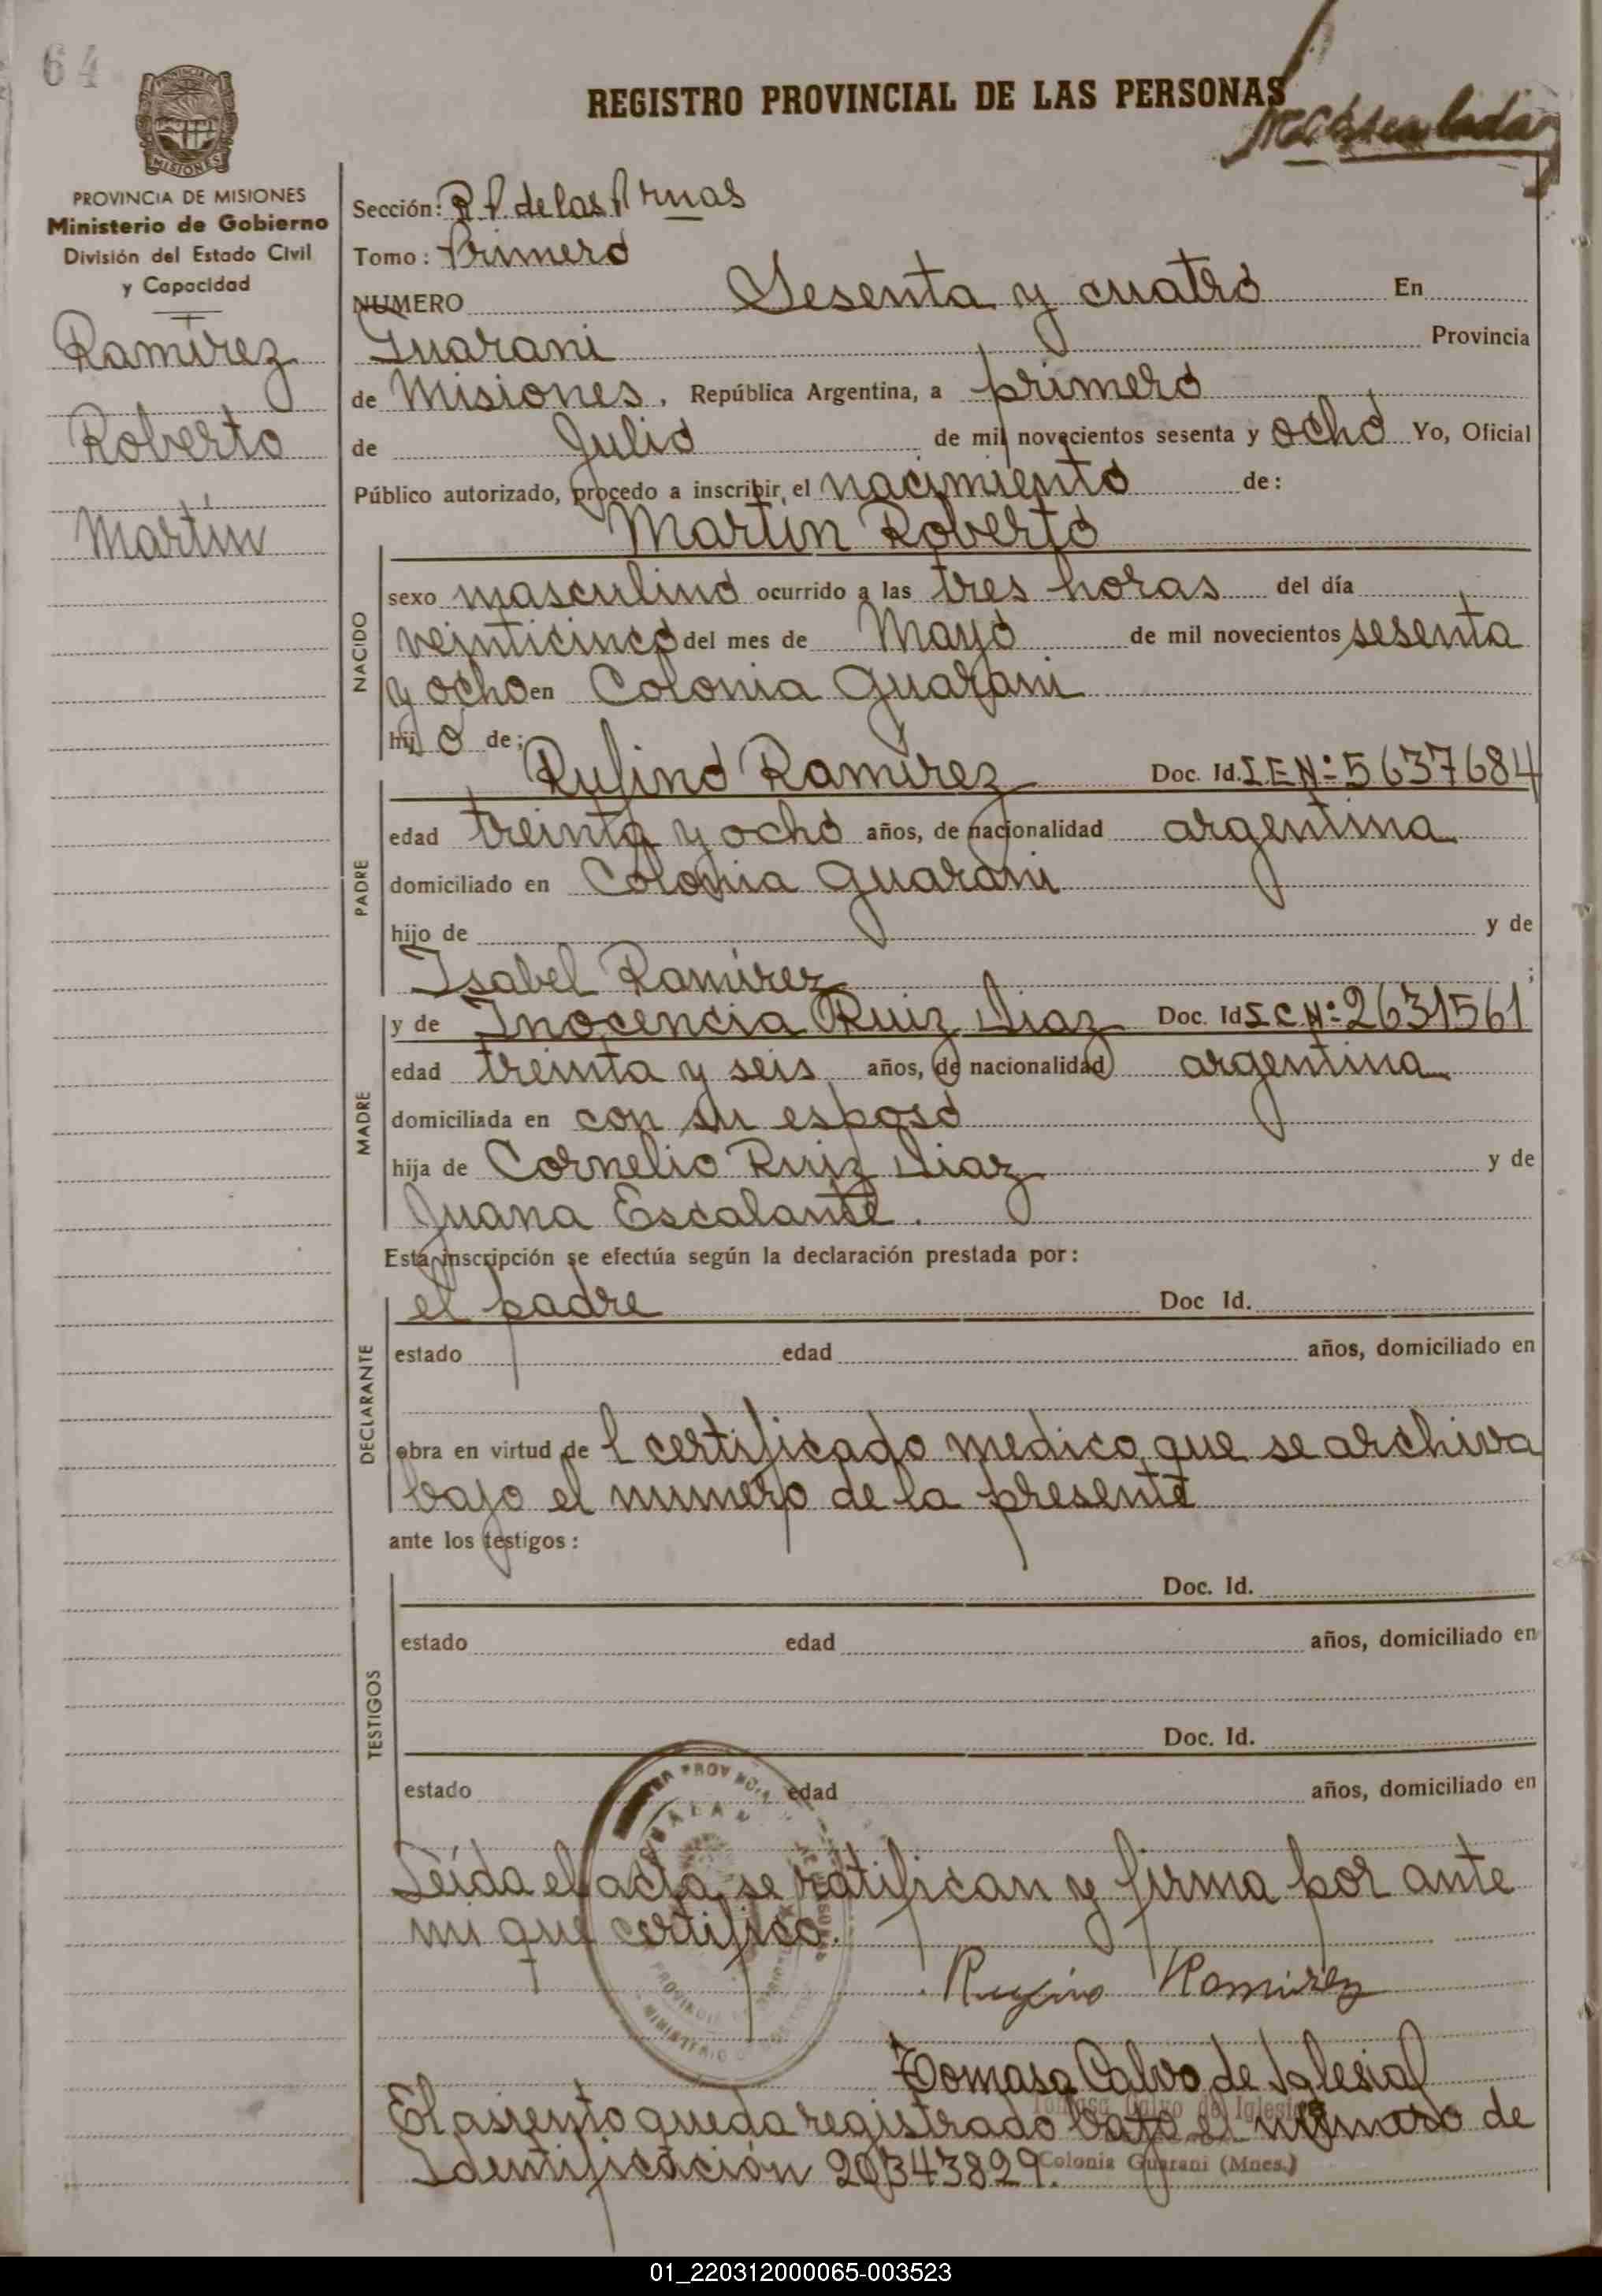 64
REGISTRO PROVINCIAL DE LAS PERSONAS
PROVINCIA DE MISIONES
MISIONES
PROVINCIA DE MISIONES
Ministerio de Gobierno
División del Estado Civil
y Capacidad
Ramírez
Roberto
Martín
Sección: R P. de las Prnas
Tomo: Primero
NUMERO Sesenta y cuatro En
Guarani Provincia
de Misiones. República Argentina, a primero
de Julio de mil novecientos sesenta y ocho Yo, Oficial
Público autorizado, procedo a inscribir el nacimiento de:
Martin Roberto
NACIDO
sexo masculino ocurrido a las tres horas del día
veinticinco del mes de Mayo de mil novecientos sesenta
y ocho en Colonia Guarani
hijo de;
PADRE
Rufino Ramírez Doc. Id. L E Nº 5637684
edad treinta y ocho años, de nacionalidad argentina
domiciliado en Colonia Guarani
hijo de y de
Isabel Ramírez ;
MADRE
y de Inocencia Ruiz Diaz Doc. Id L C Nº 2631561
edad treinta y seis años, de nacionalidad argentina
domiciliada en con su esposo
hija de Cornelio Ruiz Diaz y de
Juana Escalante.
Esta inscripción se efectúa según la declaración prestada por:
DECLARANTE
el padre Doc Id.
estado edad años, domiciliado en
obra en virtud de l certificado medico que se archiva
bajo el numero de la presente
ante los testigos:
TESTIGOS
Doc. Id.
estado edad años, domiciliado en
Doc. Id.
estado edad años, domiciliado en
Leída el acta, se ratifican y firma por ante
mi que certifico.
Rufino Ramirez
Tomasa Calvo de Iglesias
Tomasa Calvo de Iglesias
El asiento queda registrado bajo el numero de
Identificación 20343829.
Colonia Guarani (Mnes.)
01_220312000065-003523